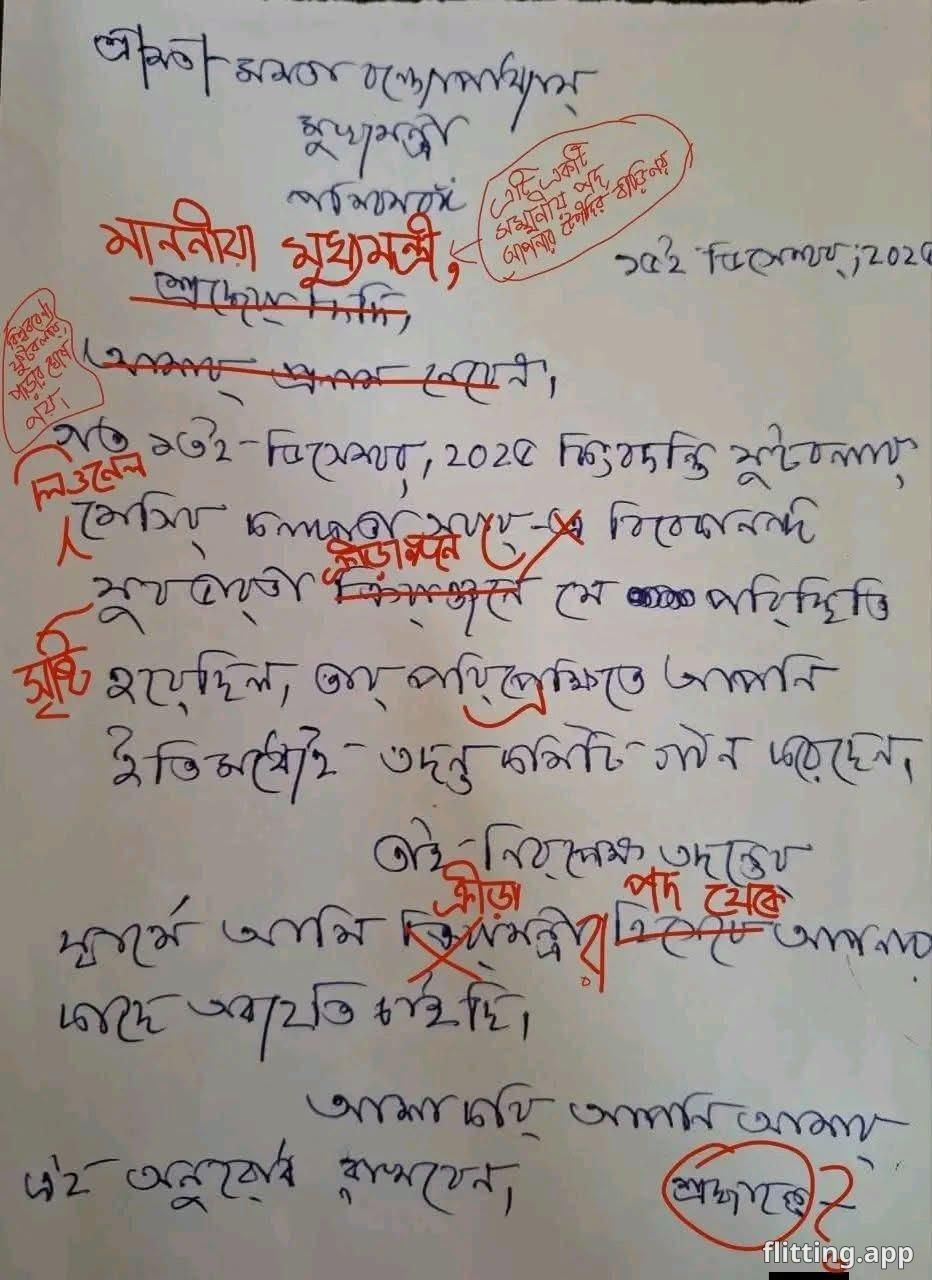 শ্রীমতী মমতা বন্দ্যোপাধ্যায়
মুখ্যমন্ত্রী
পশ্চিমবঙ্গ
এটি একটি
সম্মানীয় পদ
আপনার বাড়ির নয়
মাননীয়া মুখ্যমন্ত্রী,
১৫ই ডিসেম্বর, 2025
শ্রদ্ধেয় দিদি,
আমার প্রণাম নেবেন।
বিশ্ববরেণ্য
ফুটবলার,
পাড়ার
নয়।
গত ১৩ই ডিসেম্বর, 2025 কিংবদন্তি ফুটবলার
লিওনেল
মেসির কলকাতা সফরে এ বিবেকানন্দ
ক্রীড়াঙ্গনে
যুবভারতী ক্রিয়াঙ্গনে যে পরিস্থিতি
সৃষ্টি
হয়েছিল, তার পরিপ্রেক্ষিতে আপনি
ইতিমধ্যেই তদন্ত কমিটি গঠন করেছেন।
তাই নিরপেক্ষ তদন্তের
ক্রীড়া পদ থেকে
স্বার্থে আমি মন্ত্রী হিসেবে আপনার
কাছে অব্যহতি চাইছি।
আশা করি আপনি আমার
এই অনুরোধ রাখবেন।
শ্রদ্ধান্তে ?
flitting.app